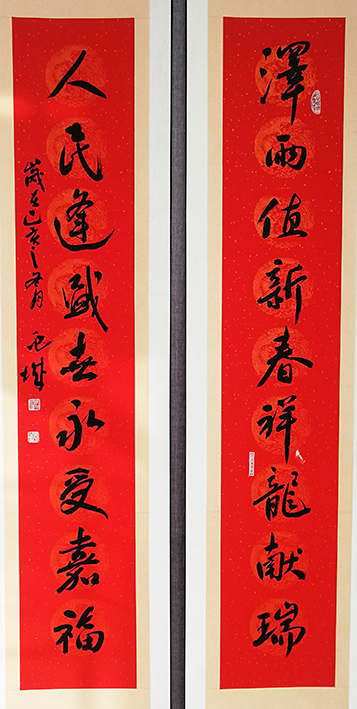 澤雨值新春祥龍献瑞
人民逢盛世永受嘉福
歲在己亥之冬月